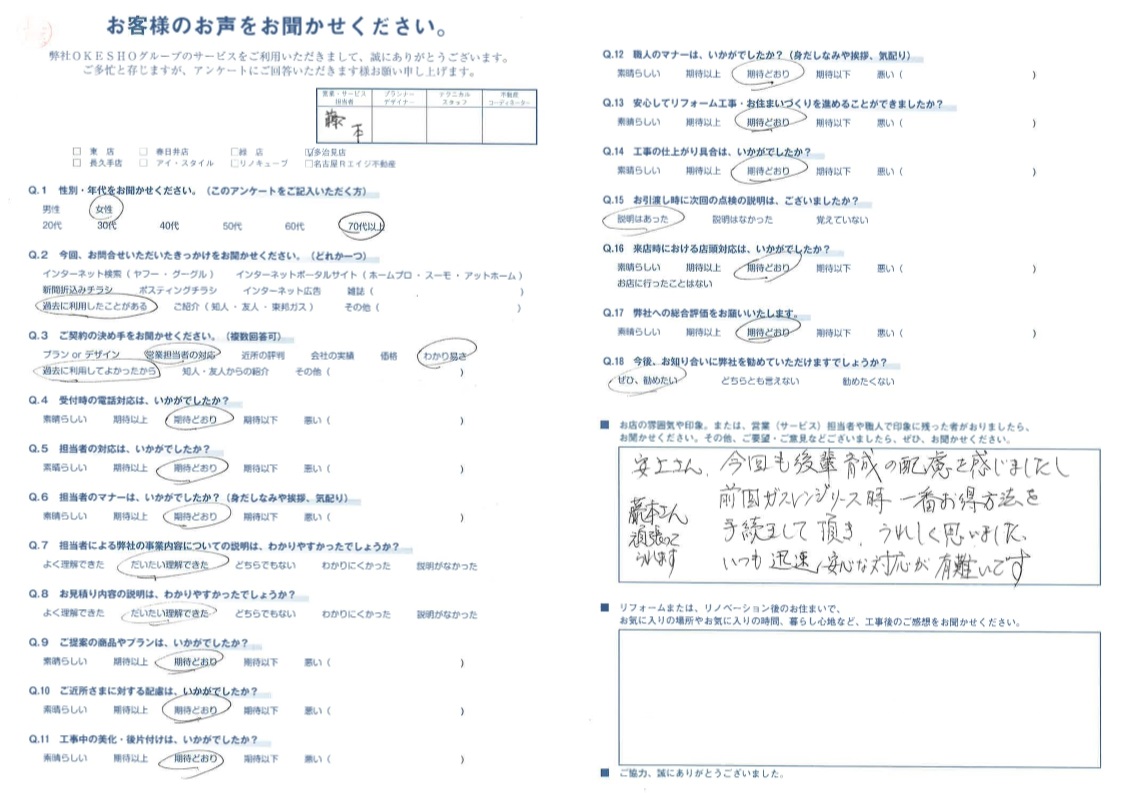 お客様のお声をお聞かせください。
弊社OKESHOグループのサービスをご利用いただきまして、誠にありがとうございます。
ご多忙と存じますが、アンケートにご回答いただきます様お願い申し上げます。
営業・サービス担当者 プランナーデザイナー テクニカルスタッフ 不動産コーディネーター
藤本
□ 東 店 □ 春日井店 □緑 店 ☑多治見店
□ 長久手店 □ アイ・スタイル □リノキューブ □名古屋Rエイジ不動産
Q.1 性別・年代をお聞かせください。（このアンケートをご記入いただく方）
男性 女性
20代 30代 40代 50代 60代 70代以上
Q.2 今回、お問合せいただいたきっかけをお聞かせください。（どれか一つ）
インターネット検索（ ヤフー ・ グーグル ） インターネットポータルサイト（ ホームプロ ・ スーモ ・ アットホーム ）
新聞折込みチラシ ポスティングチラシ インターネット広告 雑誌（ ）
過去に利用したことがある ご紹介（ 知人 ・ 友人 ・ 東邦ガス ） その他（ ）
Q.3 ご契約の決め手をお聞かせください。（複数回答可）
プラン or デザイン 営業担当者の対応 近所の評判 会社の実績 価格 わかり易さ
過去に利用してよかったから 知人・友人からの紹介 その他（ ）
Q.4 受付時の電話対応は、いかがでしたか？
素晴らしい 期待以上 期待どおり 期待以下 悪い（ ）
Q.5 担当者の対応は、いかがでしたか？
素晴らしい 期待以上 期待どおり 期待以下 悪い（ ）
Q.6 担当者のマナーは、いかがでしたか？（身だしなみや挨拶、気配り）
素晴らしい 期待以上 期待どおり 期待以下 悪い（ ）
Q.7 担当者による弊社の事業内容についての説明は、わかりやすかったでしょうか？
よく理解できた だいたい理解できた どちらでもない わかりにくかった 説明がなかった
Q.8 お見積り内容の説明は、わかりやすかったでしょうか？
よく理解できた だいたい理解できた どちらでもない わかりにくかった 説明がなかった
Q.9 ご提案の商品やプランは、いかがでしたか？
素晴らしい 期待以上 期待どおり 期待以下 悪い（ ）
Q.10 ご近所さまに対する配慮は、いかがでしたか？
素晴らしい 期待以上 期待どおり 期待以下 悪い（ ）
Q.11 工事中の美化・後片付けは、いかがでしたか？
素晴らしい 期待以上 期待どおり 期待以下 悪い（ ）
Q.12 職人のマナーは、いかがでしたか？（身だしなみや挨拶、気配り）
素晴らしい 期待以上 期待どおり 期待以下 悪い（ ）
Q.13 安心してリフォーム工事・お住まいづくりを進めることができましたか？
素晴らしい 期待以上 期待どおり 期待以下 悪い（ ）
Q.14 工事の仕上がり具合は、いかがでしたか？
素晴らしい 期待以上 期待どおり 期待以下 悪い（ ）
Q.15 お引渡し時に次回の点検の説明は、ございましたか？
説明はあった 説明はなかった 覚えていない
Q.16 来店時における店頭対応は、いかがでしたか？
素晴らしい 期待以上 期待どおり 期待以下 悪い（ ）
お店に行ったことはない
Q.17 弊社への総合評価をお願いいたします。
素晴らしい 期待以上 期待どおり 期待以下 悪い（ ）
Q.18 今後、お知り合いに弊社を勧めていただけますでしょうか？
ぜひ、勧めたい どちらとも言えない 勧めたくない
■ お店の雰囲気や印象。または、営業（サービス）担当者や職人で印象に残った者がおりましたら、
お聞かせください。その他、ご要望・ご意見などございましたら、ぜひ、お聞かせください。
安上さん、今回も後輩育成の配慮を感じましたし
前回ガスレンジリース時 一番お得方法を
手続きして頂き、うれしく思いました、
いつも迅速、安心な対応が有難いです
藤本さん
頑張って
うれします
■ リフォームまたは、リノベーション後のお住まいで、
お気に入りの場所やお気に入りの時間、暮らし心地など、工事後のご感想をお聞かせください。
■ ご協力、誠にありがとうございました。